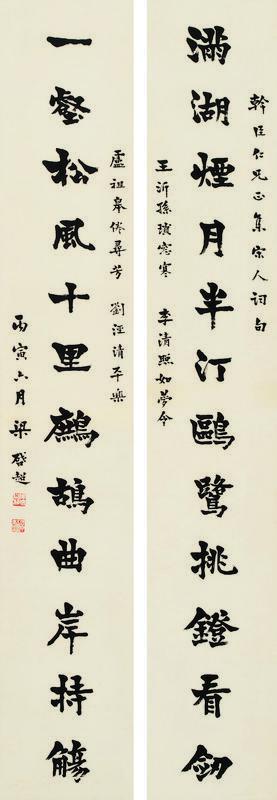 幹臣仁兄正集宋人詞句
滿湖煙月半汀鷗鷺挑鐙看劒
王沂孫瑣窓寒　李清照如夢令
盧祖皋倦尋芳　劉涇清平樂
一壑松風十里鷓鴣曲岸持觴
丙寅六月梁啟超